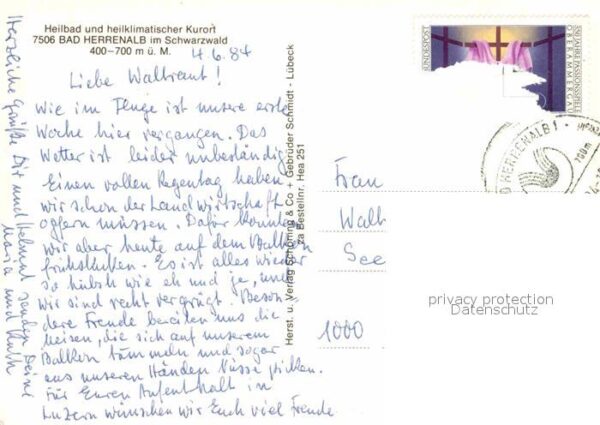 Heilbad und heilklimatischer Kurort
7506 BAD HERRENALB im Schwarzwald
400–700 m ü. M.
4.6.84
Liebe Waltraut!
Wie im Fluge ist unsere erste
Woche hier vergangen. Das
Wetter ist leider unbeständig
Einen vollen Regentag haben
wir schon der Landwirtschaft
opfern müssen. Dafür konnten
wir aber heute auf dem Balkon
frühstücken. Es ist alles wieder
so hübsch wie eh und je, und
wir sind recht vergnügt. Beson-
dere Freude bereiten uns die
Meisen, die sich auf unserem
Balkon tummeln und sogar
aus unseren Händen Nüsse picken.
Für Euren Aufenthalt in
Luzern wünschen wir Euch viel Freude
Herzliche Grüße Dir und Helmut senden Deine
Maria und Ruth
Herst. u. Verlag Schöning & Co + Gebrüder Schmidt - Lübeck
za Bestellnr. Hea 251
DEUTSCHE BUNDESPOST
350 JAHRE PASSIONSSPIELE
OBERAMMERGAU
BAD HERRENALB 1
700m
Frau
Walt
See
1000
privacy protection
Datenschutz